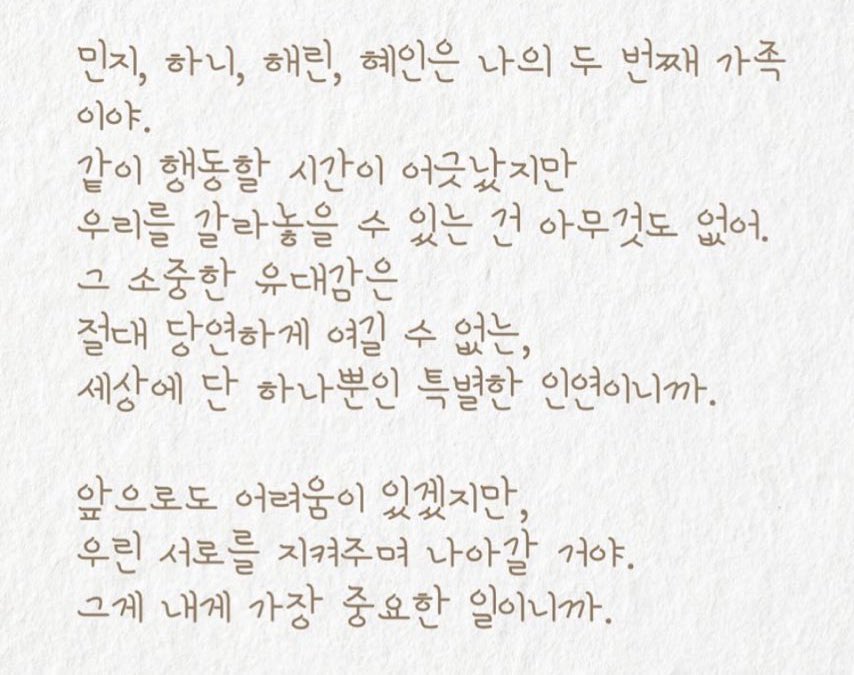 민지, 하니, 해린, 혜인은 나의 두 번째 가족
이야.
같이 행동할 시간이 어긋났지만
우리를 갈라놓을 수 있는 건 아무것도 없어.
그 소중한 유대감은
절대 당연하게 여길 수 없는,
세상에 단 하나뿐인 특별한 인연이니까.
앞으로도 어려움이 있겠지만,
우린 서로를 지켜주며 나아갈 거야.
그게 내게 가장 중요한 일이니까.